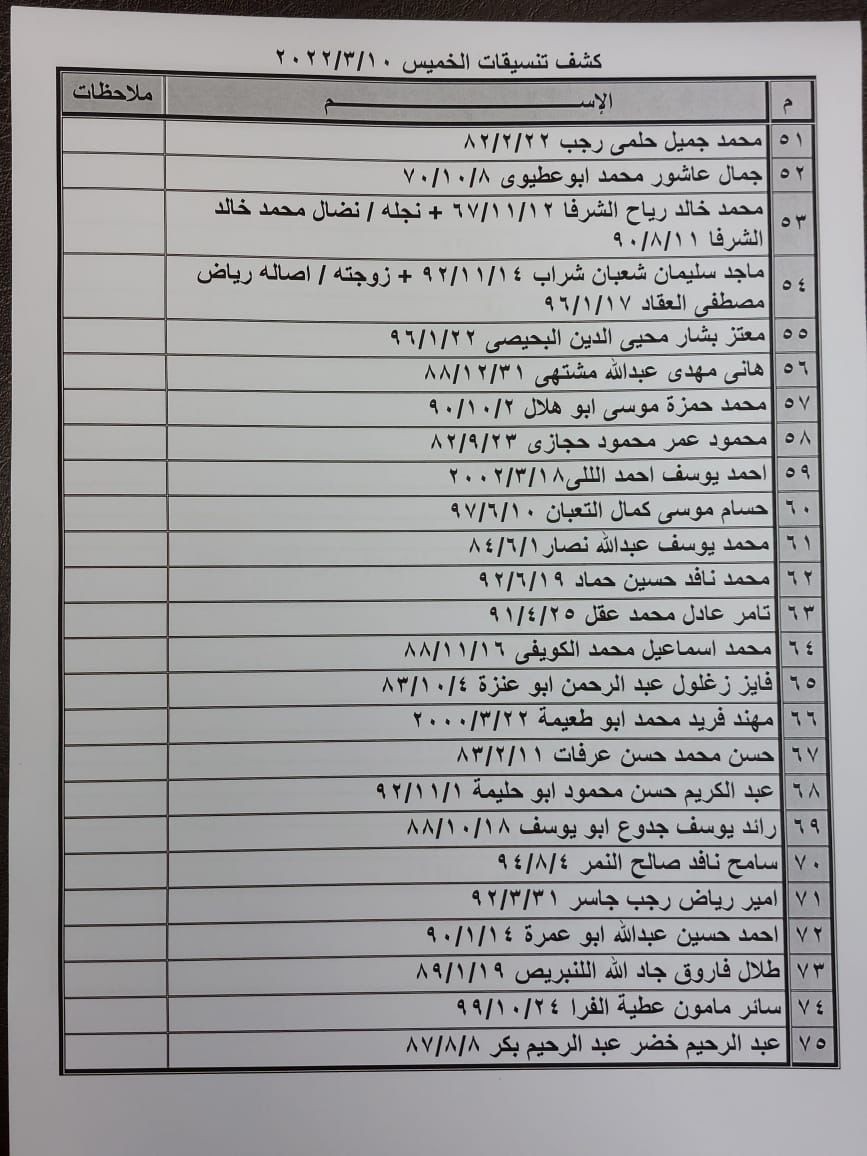 كشف تنسيقات الخميس ٢٠٢٢/٣/١٠
م الإســـــــــــــم ملاحظات
٥١ محمد جميل حلمى رجب ٨٢/٢/٢٢
٥٢ جمال عاشور محمد ابوعطيوى ٧٠/١٠/٨
٥٣ محمد خالد رياح الشرفا ٦٧/١١/١٢ + نجله / نضال محمد خالد
الشرفا ٩٠/٨/١١
٥٤ ماجد سليمان شعبان شراب ٩٢/١١/١٤ + زوجته / اصاله رياض
مصطفى العقاد ٩٦/١/١٧
٥٥ معتز بشار محيى الدين البحيصى ٩٦/١/٢٢
٥٦ هانى مهدى عبدالله مشتهى ٨٨/١٢/٣١
٥٧ محمد حمزة موسى ابو هلال ٩٠/١٠/٢
٥٨ محمود عمر محمود حجازى ٨٢/٩/٢٣
٥٩ احمد يوسف احمد اللى٢٠٠٢/٣/١٨
٦٠ حسام موسى كمال التعبان ٩٧/٦/١٠
٦١ محمد يوسف عبدالله نصار٨٤/٦/١
٦٢ محمد نافد حسين حماد ٩٢/٦/١٩
٦٣ تامر عادل محمد عقل ٩١/٤/٢٥
٦٤ محمد اسماعيل محمد الكويفى ٨٨/١١/١٦
٦٥ فايز زغلول عبد الرحمن ابو عنزة ٨٣/١٠/٤
٦٦ مهند فريد محمد ابو طعيمة ٢٠٠٠/٣/٢٢
٦٧ حسن محمد حسن عرفات ٨٣/٢/١١
٦٨ عبد الكريم حسن محمود ابو حليمة ٩٢/١١/١
٦٩ رائد يوسف جدوع ابو يوسف ٨٨/١٠/١٨
٧٠ سامح نافد صالح النمر ٩٤/٨/٤
٧١ امير رياض رجب جاسر ٩٢/٣/٣١
٧٢ احمد حسين عبدالله ابو عمرة ٩٠/١/١٤
٧٣ طلال فاروق جاد الله اللنبريص ٨٩/١/١٩
٧٤ سائر مامون عطية الفرا ٩٩/١٠/٢٤
٧٥ عبد الرحيم خضر عبد الرحيم بكر ٨٧/٨/٨